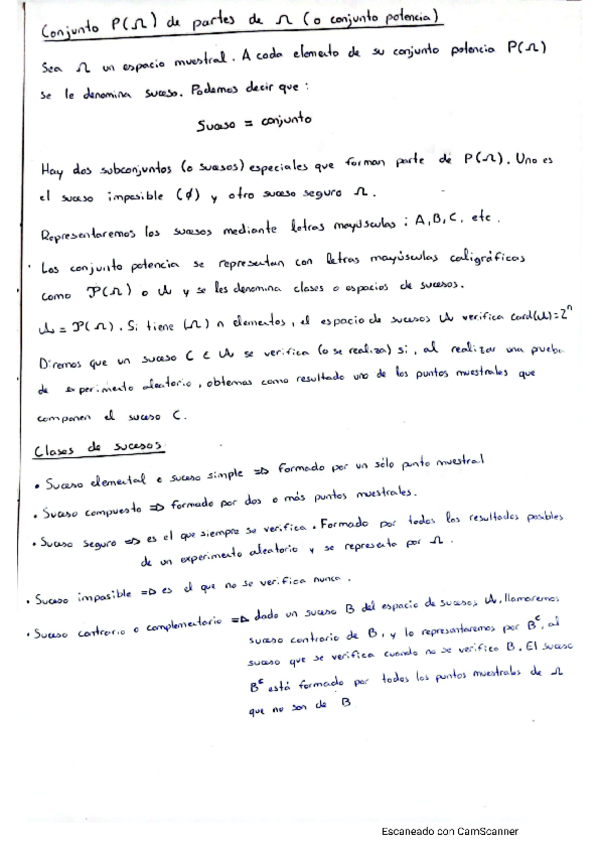 Conjunto P(Ω) de partes de Ω (o conjunto potencia)
Sea Ω un espacio muestral. A cada elemento de su conjunto potencia P(Ω)
se le denomina suceso. Podemos decir que:
Suceso = conjunto
Hay dos subconjuntos (o sucesos) especiales que forman parte de P(Ω). Uno es
el suceso imposible (∅) y otro suceso seguro Ω.
Representaremos los sucesos mediante letras mayúsculas: A, B, C, etc.
Los conjunto potencia se representan con letras mayúsculas caligráficas
como P(Ω) o 𝒰 y se les denomina clases o espacios de sucesos.
𝒰 = P(Ω). Si tiene (Ω) n elementos, el espacio de sucesos 𝒰 verifica card(𝒰)=2ⁿ
Diremos que un suceso C ∈ 𝒰 se verifica (o se realiza) si, al realizar una prueba
de experimento aleatorio, obtemos como resultado uno de los puntos muestrales que
componen el suceso C.
Clases de sucesos
• Suceso elemental o suceso simple ⇒ formado por un sólo punto muestral
• Suceso compuesto ⇒ formado por dos o más puntos muestrales.
• Suceso seguro ⇒ es el que siempre se verifica. Formado por todos los resultados posibles
de un experimento aleatorio y se representa por Ω.
• Suceso imposible ⇒ es el que no se verifica nunca.
• Suceso contrario o complementario ⇒ dado un suceso B del espacio de sucesos 𝒰, llamaremos
suceso contrario de B, y lo representaremos por Bᶜ, al
suceso que se verifica cuando no se verifica B. El suceso
Bᶜ está formado por todos los puntos muestrales de Ω
que no son de B
Escaneado con CamScanner